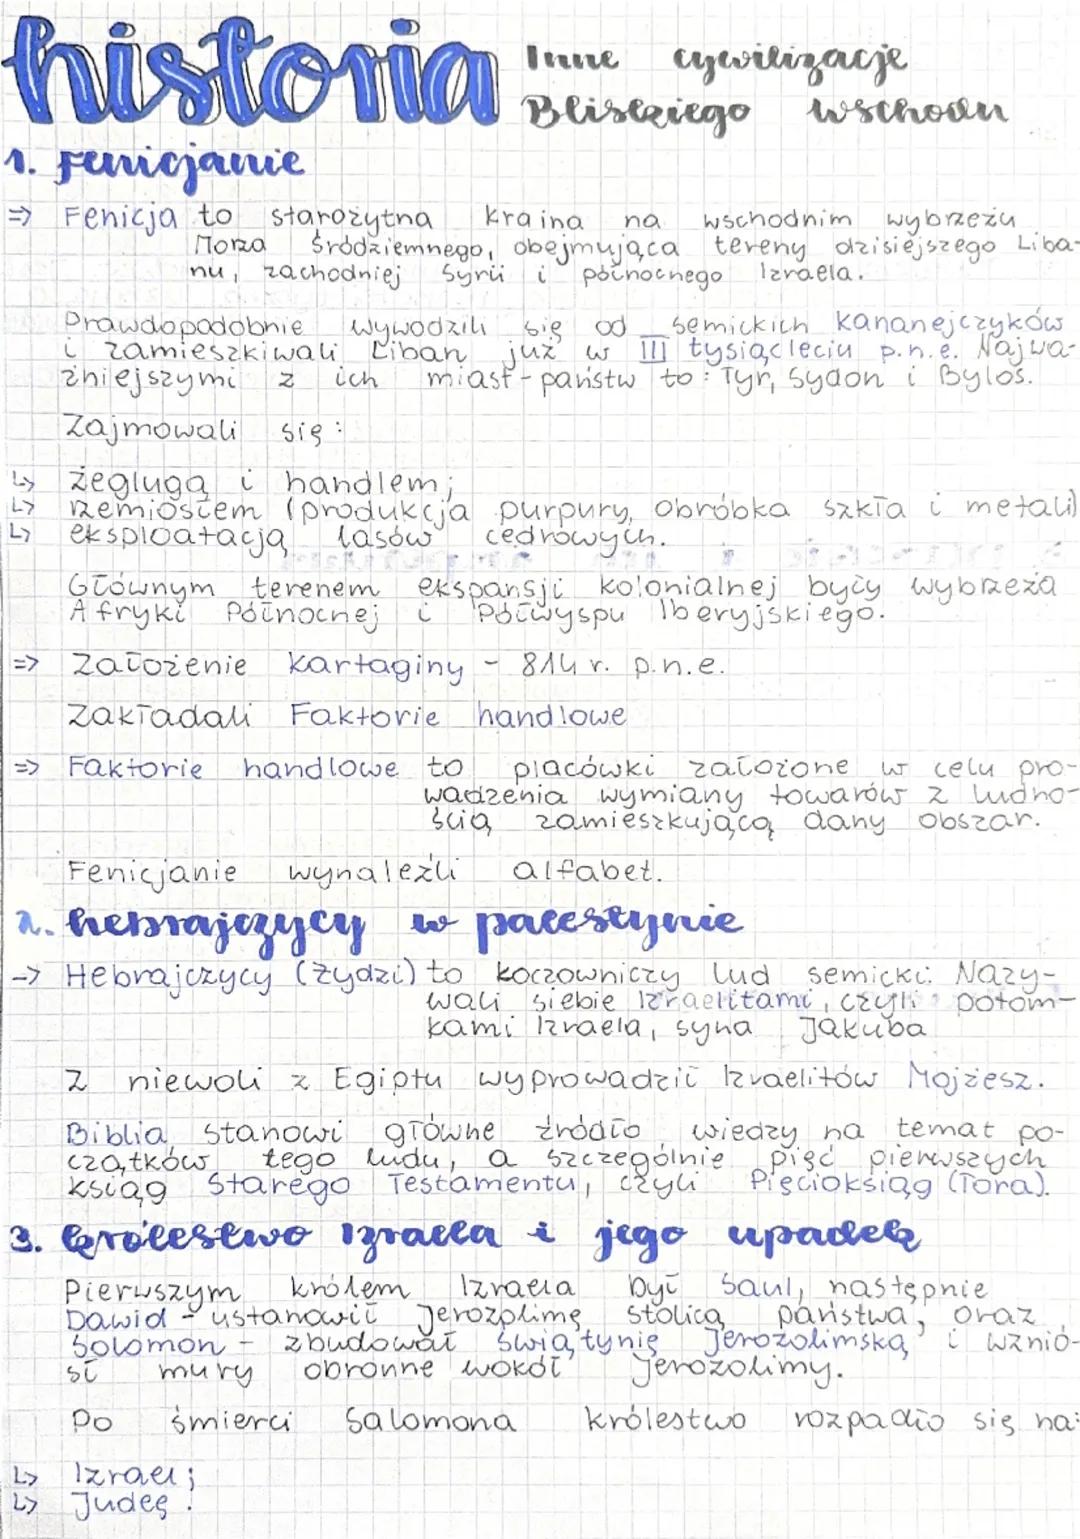 historia
Inne cywilizacje
Bliskiego wschodu
1. Fenicjanie
=> Fenicja to starożytna kraina na wschodnim wybrzeżu
Morza Śródziemnego, obejmująca tereny dzisiejszego Liba-
nu, zachodniej Syrii i północnego Izraela.
Prawdopodobnie wywodzili się od semickich kananejczyków
i zamieszkiwali Liban już w III tysiącleciu p.n.e. Najwa-
żniejszymi z ich miast-państw to: Tyr, Sydon i Bylos.
Zajmowali się:
↳ żeglugą i handlem;
↳ rzemiosłem (produkcja purpury, obróbka szkła i metali)
↳ eksploatacją lasów cedrowych.
Głównym terenem ekspansji kolonialnej były wybrzeża
Afryki Północnej i Półwyspu Iberyjskiego.
=> Założenie kartaginy - 814 r. p.n.e.
Zakładali Faktorie handlowe
=> Faktorie handlowe to placówki założone w celu pro-
wadzenia wymiany towarów z ludno-
ścią zamieszkującą dany obszar.
Fenicjanie wynaleźli alfabet.
2. hebrajczycy w palestynie
-> Hebrajczycy (Żydzi) to koczowniczy lud semicki. Nazy-
wali siebie Izraelitami, czyli potom-
kami Izraela, syna Jakuba
Z niewoli z Egiptu wyprowadził Izraelitów Mojżesz.
Biblia stanowi główne źródło wiedzy na temat po-
czątków tego ludu, a szczególnie pięć pierwszych
ksiąg Starego Testamentu, czyli Pięcioksiąg (Tora).
3. królestwo Izraela i jego upadek
Pierwszym królem Izraela był Saul, następnie
Dawid - ustanowił Jerozolimę stolicą państwa, oraz
Solomon - zbudował Świątynię Jerozolimską i wznió-
sł mury obronne wokół Jerozolimy.
Po śmierci Salomona królestwo rozpadło się na:
↳ Izrael;
↳ Judeę.